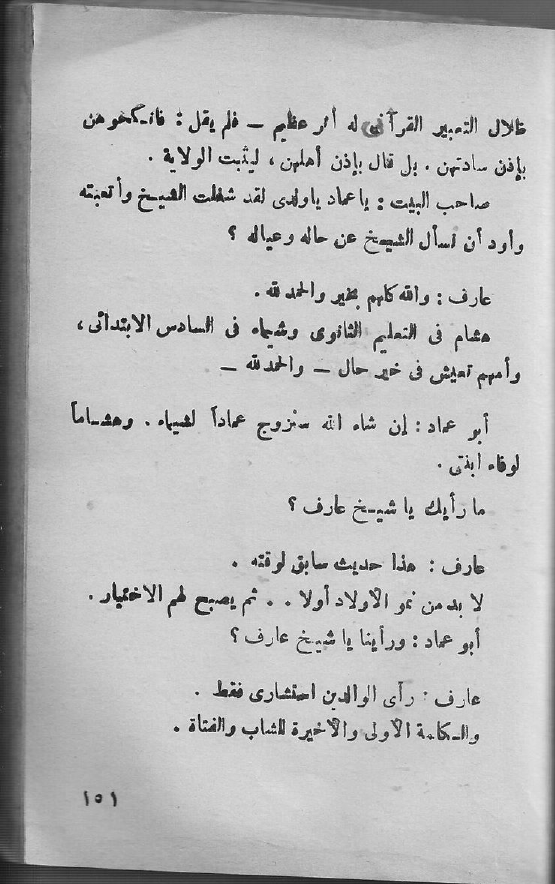 ظلال التعبير القرآني له أثر عظيم — فلم يقل : فانكحوهن
بإذن سادتهن . بل قال بإذن أهلهن ، ليثبت الولاية .
صاحب البيت : يا عماد ياولدى لقد شغلت الشيخ وأتعبته
وأود أن نسأل الشيخ عن حاله وعياله ؟
عارف : والله كلهم بخير والحمد لله .
هشام فى التعليم الثانوى وشيماء فى السادس الابتدائى ،
وأمهم تعيش فى خير حال — والحمد لله —
أبو عماد : إن شاء الله سنزوج عماداً لشيماء . وهشاماً
لوفاء ابنتى .
ما رأيك يا شيخ عارف ؟
عارف : هذا حديث سابق لوقته .
لا بد من نمو الأولاد أولا . . ثم يصبح لهم الاختيار .
أبو عماد : ورأينا يا شيخ عارف ؟
عارف : رأى الوالدين استشارى فقط .
والكلمة الأولى والأخيرة للشاب والفتاة .
١٥١